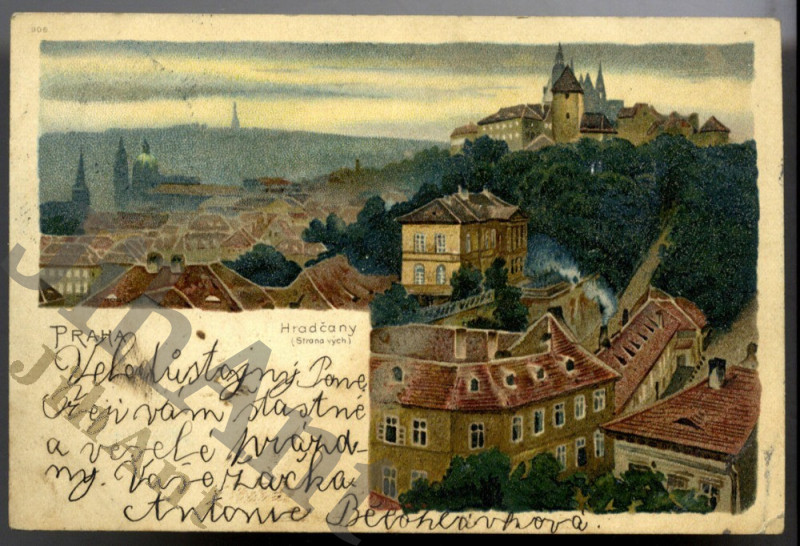 906
PRAHA
Hradčany
(Strana vých)
Veledůstojný Pane,
Přeji vám šťastné
a veselé prázd-
ny. Vaše žačka
Antonie Bělohlávková.